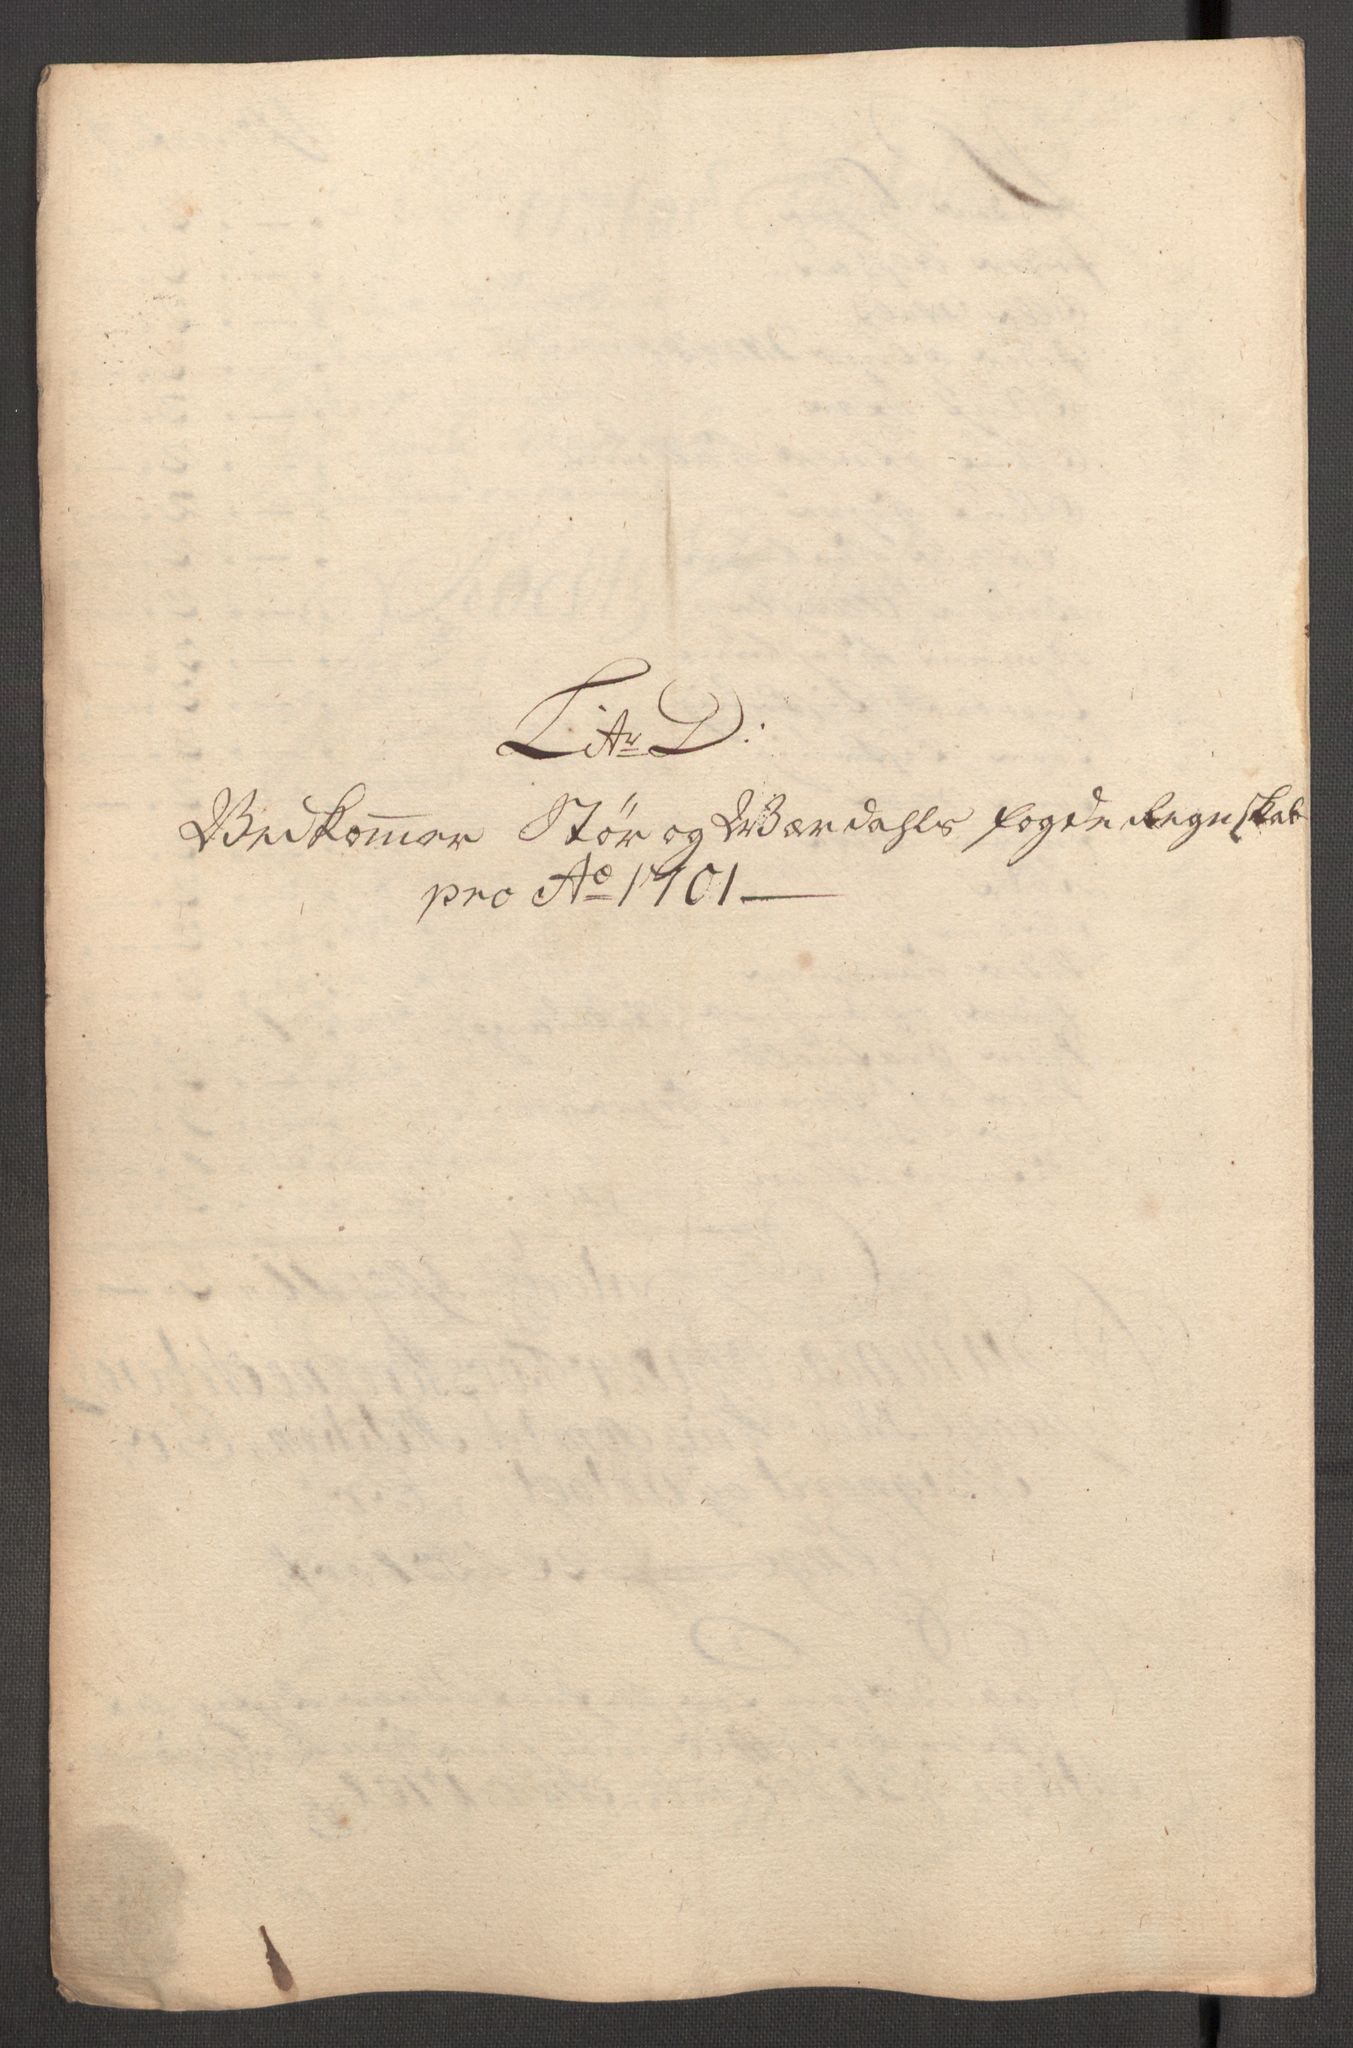 Litr D:
Vedkommer Stør og Wærdahls fogde Regnskab
pro Ao 1701